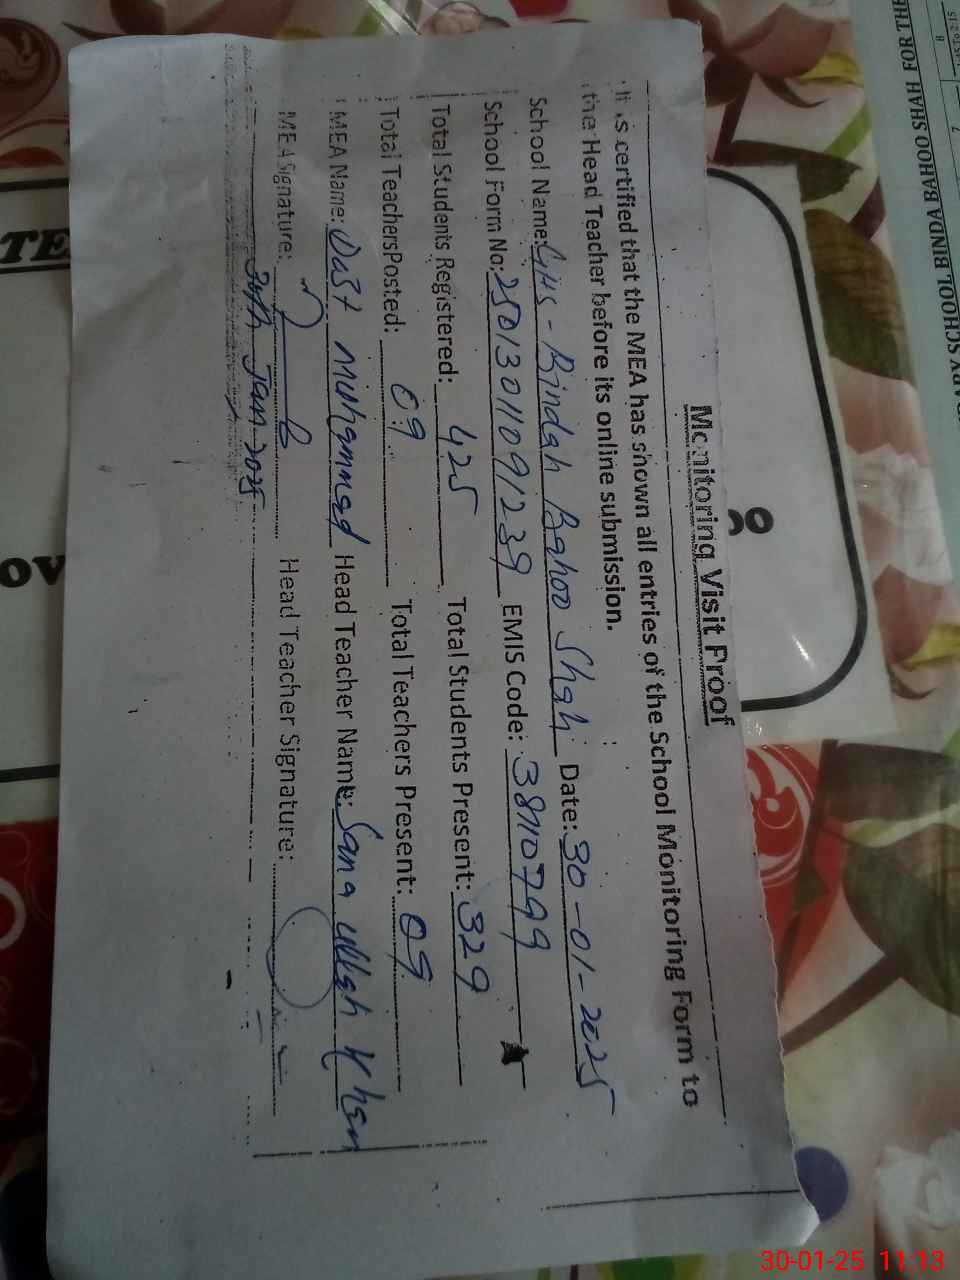 Monitoring Visit Proof
It is certified that the MEA has shown all entries of the School Monitoring Form to
the Head Teacher before its online submission.
School Name: GHS - Bindah Bahoo Shah Date: 30-01-2025
School Form No: 2501301109/239 EMIS Code: 38110799
Total Students Registered: 425 Total Students Present: 329
Total Teachers Posted: 09 Total Teachers Present: 09
MEA Name: Dost Muhammad Head Teacher Name: Sana Ullah Khan
MEA Signature: Head Teacher Signature:
30th Jan 2025
SCHOOL BINDA BAHOO SHAH FOR THE
TE
OV
30-01-25 11:13